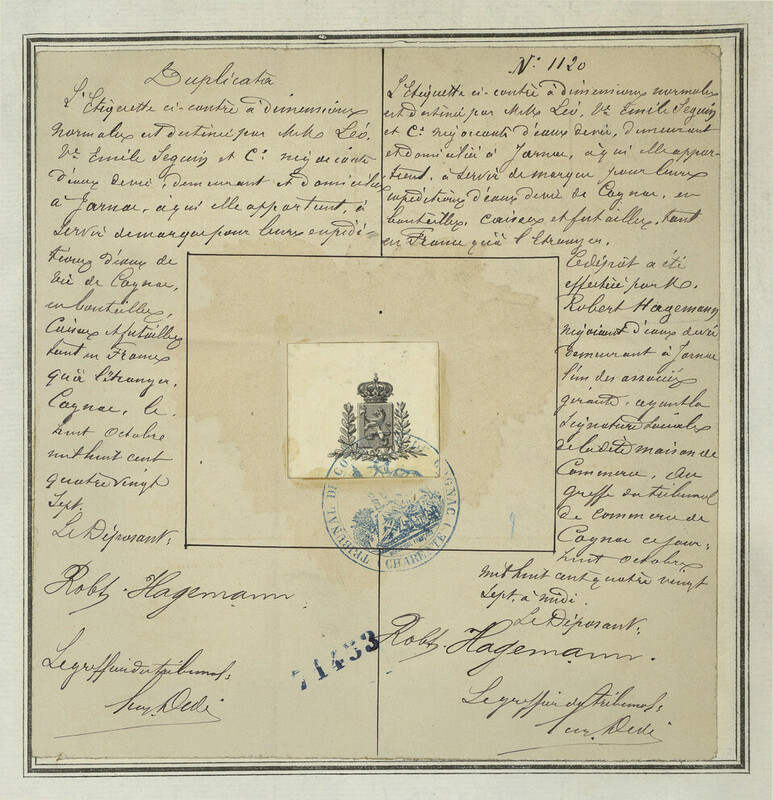 Duplicata
L'Etiquette ci-contre à dimensions
normales est destinée par M.M. Léo,
Vve Emile Seguin et Cie négociants
d'eaux de vie, demeurant et domiciliés
à Jarnac, à qui elle appartient, à
servir de marque pour leurs expédi-
tions d'eaux de
vie de Cognac,
en bouteilles,
Caisses et futailles
tant en France
qu'à l'étranger.
Cognac, le
huit Octobre
mil huit cent
quatre vingt
Sept.
Le Déposant,
Robt. Hagemann
Le greffier du tribunal,
No 1120
L'Etiquette ci-contre à dimensions normales
est destinée par M.M. Léo, Vve Emile Seguin
et Cie négociants d'eaux de vie, demeurant
et domiciliés à Jarnac, à qui elle appar-
tient, à servir de marque pour leurs
expéditions d'eaux de vie de Cognac, en
bouteilles, caisses et futailles, tant
en France qu'à l'étranger.
Ce dépôt a été
effectué par M.
Robert Hagemann
négociant d'eaux de vie
demeurant à Jarnac
l'un des associés
gérants, ayant la
signature sociale
de la dite maison de
Commerce, au
greffe du tribunal
de commerce de
Cognac ce jour,
huit Octobre
mil huit cent quatre vingt
Sept, à midi.
Le Déposant,
Robt. Hagemann.
Le greffier du tribunal,
TRIBUNAL DE COGNAC (CHARENTE)
71433